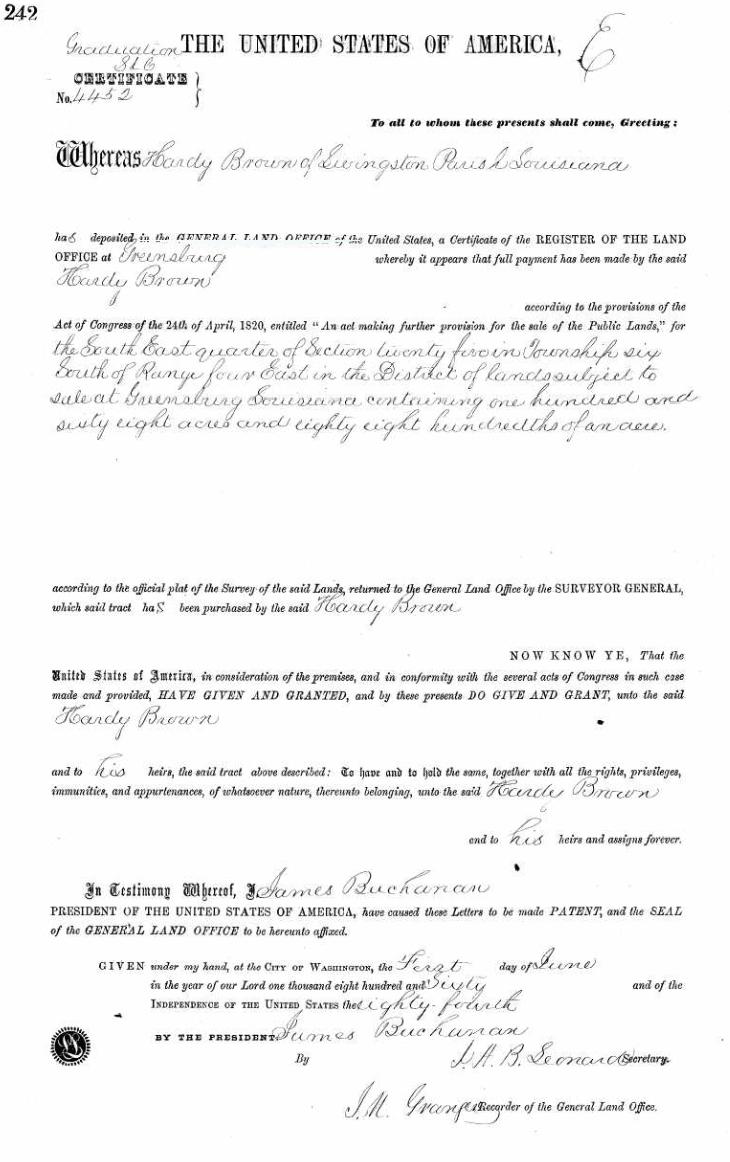 242
Graduation THE UNITED STATES OF AMERICA, E
CERTIFICATE
No. 4452
To all to whom these presents shall come, Greeting:
Whereas Hardy Brown of Livingston Parish Louisiana
has deposited in the GENERAL LAND OFFICE of the United States, a Certificate of the REGISTER OF THE LAND
OFFICE at Greensburg whereby it appears that full payment has been made by the said
Hardy Brown
according to the provisions of the
Act of Congress of the 24th of April, 1820, entitled "An act making further provision for the sale of the Public Lands," for
the South East quarter of Section twenty five in Township six
South of Range four East in the District of lands subject to
sale at Greensburg Louisiana containing one hundred and
sixty eight acres and eighty eight hundredths of an acre.
according to the official plat of the Survey of the said Lands, returned to the General Land Office by the SURVEYOR GENERAL,
which said tract has been purchased by the said Hardy Brown
NOW KNOW YE, That the
United States of America, in consideration of the premises, and in conformity with the several acts of Congress in such case
made and provided, HAVE GIVEN AND GRANTED, and by these presents DO GIVE AND GRANT, unto the said
Hardy Brown
and to his heirs, the said tract above described: To have and to hold the same, together with all the rights, privileges,
immunities, and appurtenances, of whatsoever nature, thereunto belonging, unto the said Hardy Brown
and to his heirs and assigns forever.
In Testimony Whereof, I, James Buchanan
PRESIDENT OF THE UNITED STATES OF AMERICA, have caused these Letters to be made PATENT, and the SEAL
of the GENERAL LAND OFFICE to be hereunto affixed.
GIVEN under my hand, at the CITY OF WASHINGTON, the First day of June
in the year of our Lord one thousand eight hundred and Sixty and of the
INDEPENDENCE OF THE UNITED STATES the eighty-fourth
BY THE PRESIDENT: James Buchanan
By J. A. B. Leonard Secretary.
J. N. Granger Recorder of the General Land Office.